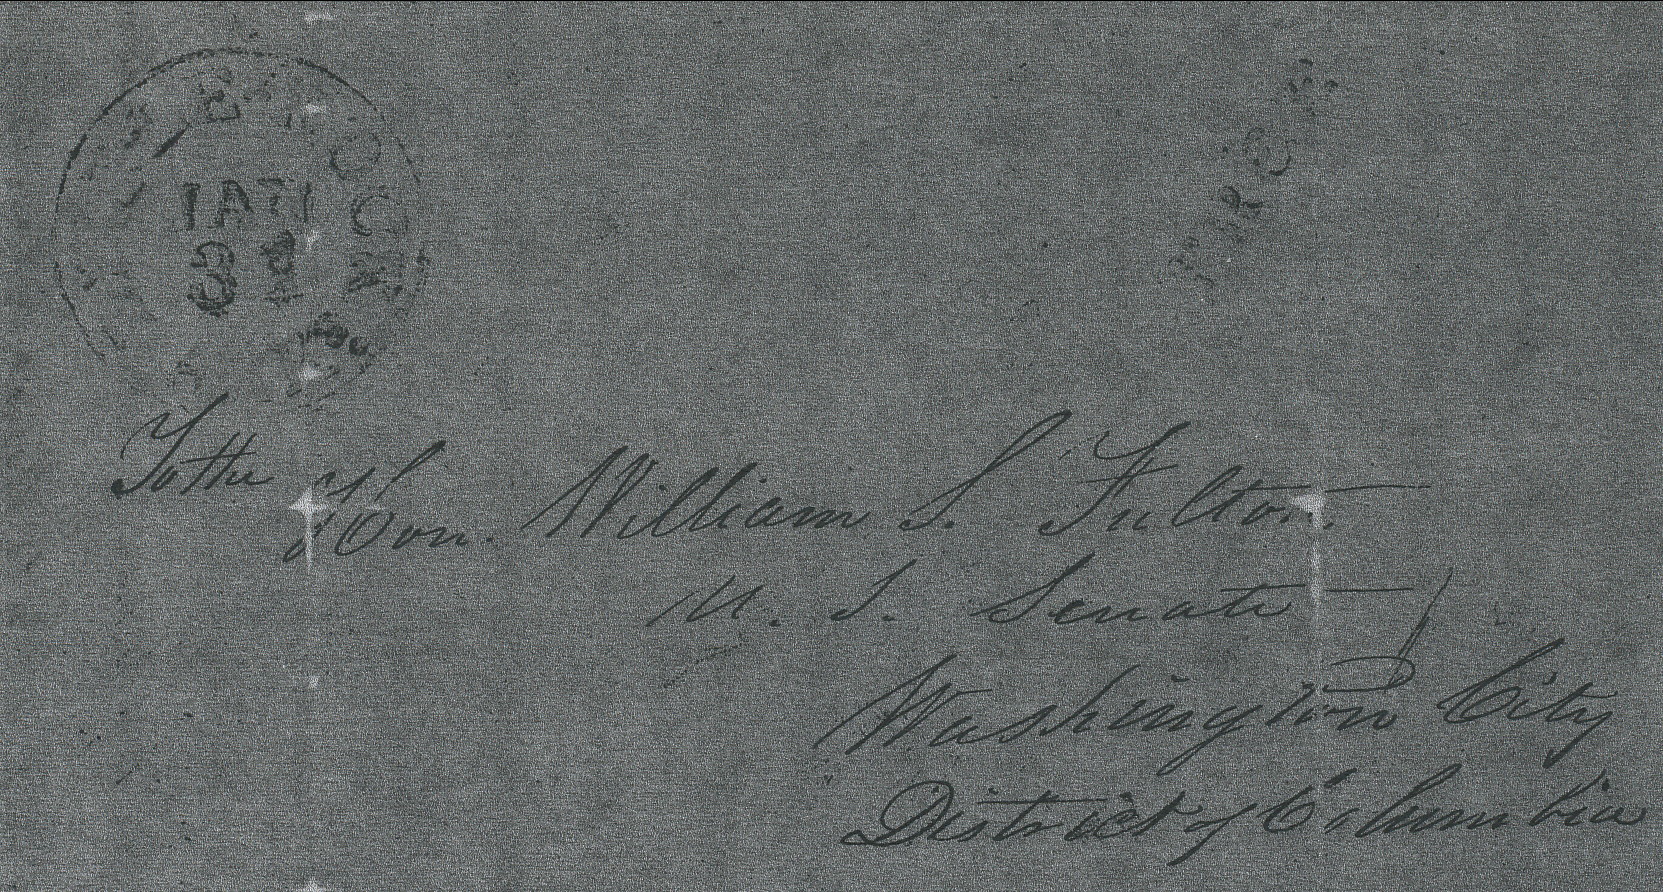 FREE
To the
Hon. William S. Fulton.
U. S. Senate
Washington City
District of Columbia